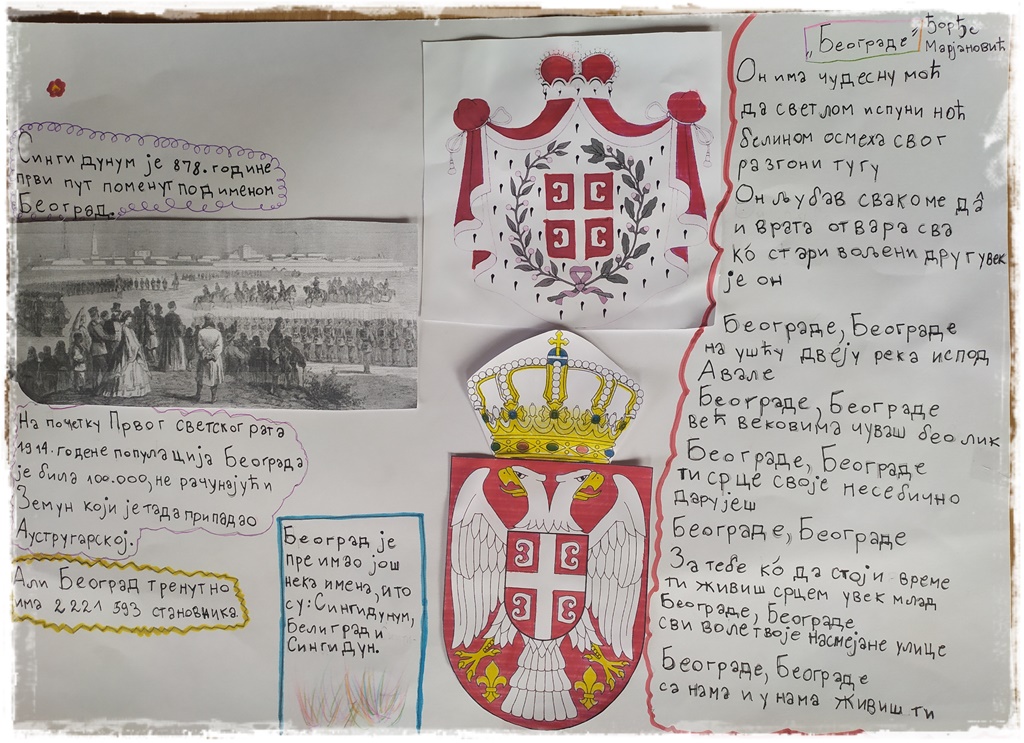 Сингидунум је 878. године
први пут поменут под именом
Београд.
На почетку Првог светског рата
1914. године популација Београда
је била 100.000, не рачунајући
Земун који је тада припадао
Аустругарској.
Али Београд тренутно
има 2 221 593 становника.
Београд је
пре имао још
нека имена, а то
су: Сингидунум,
Белиград и
Сингидун.
„Београде"
Ђорђе
Марјановић
Он има чудесну моћ
да светлом испуни ноћ
белином осмеха свог
разгони тугу
Он љубав свакоме да
и врата отвара сва
ко́ стари вољени друг увек
је он
Београде, Београде
на ушћу двеју река испод
Авале
Београде, Београде
већ вековима чуваш бео лик
Београде, Београде
ти срце своје несебично
дарујеш
Београде, Београде
За тебе ко́ да стоји време
ти живиш срцем увек млад
Београде, Београде
сви воле твоје насмејане улице
Београде, Београде
са нама и у нама живиш ти